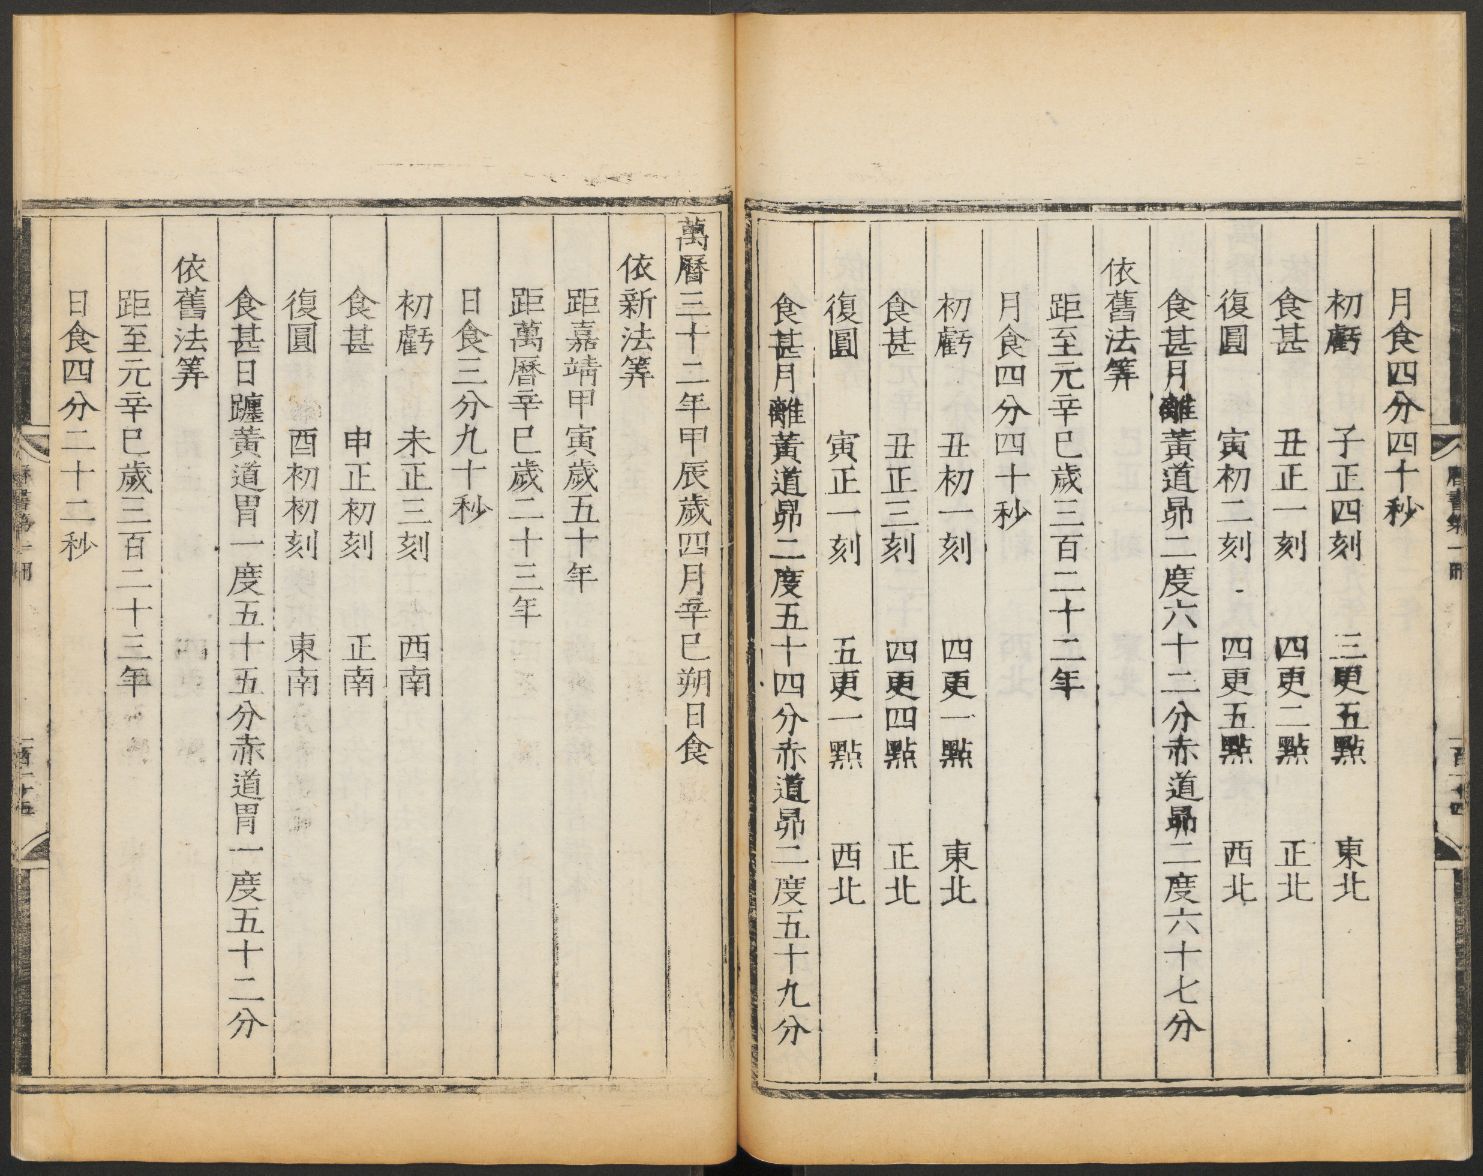 月食四分四十秒
初虧　子正四刻　三更五點　東北
食甚　丑正一刻　四更二點　正北
復圓　寅初二刻　四更五點　西北
食甚月離黃道昴二度六十二分赤道昴二度六十七分
依舊法筭
距至元辛巳歲三百二十二年
月食四分四十秒
初虧　丑初一刻　四更一點　東北
食甚　丑正三刻　四更四點　正北
復圓　寅正一刻　五更一點　西北
食甚月離黃道昴二度五十四分赤道昴二度五十九分
萬曆三十二年甲辰歲四月辛巳朔日食
依新法筭
距嘉靖甲寅歲五十年
距萬曆辛巳歲二十三年
日食三分九十秒
初虧　未正三刻　西南
食甚　申正初刻　正南
復圓　酉初初刻　東南
食甚日躔黃道胃一度五十五分赤道胃一度五十二分
依舊法筭
距至元辛巳歲三百二十三年
日食四分二十二秒